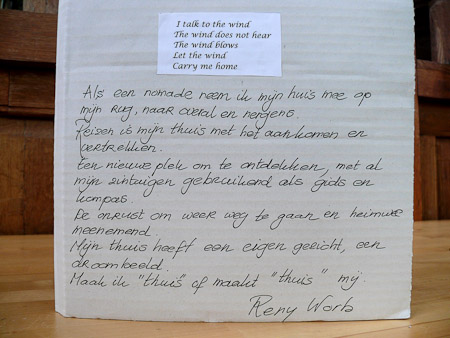 I talk to the wind
The wind does not hear
The wind blows
Let the wind
Carry me home
Als een nomade neem ik mijn huis mee op
mijn rug, naar overal en nergens.
Reizen is mijn thuis met het aankomen en
vertrekken.
Een nieuwe plek om te ontdekken, met al
mijn zintuigen gebruikend als gids en
kompas.
De onrust om weer weg te gaan en heimwee
meenemend.
Mijn thuis heeft een eigen gezicht, een
droombeeld.
Maak ik "thuis" of maakt "thuis" mij.
Reny Worb